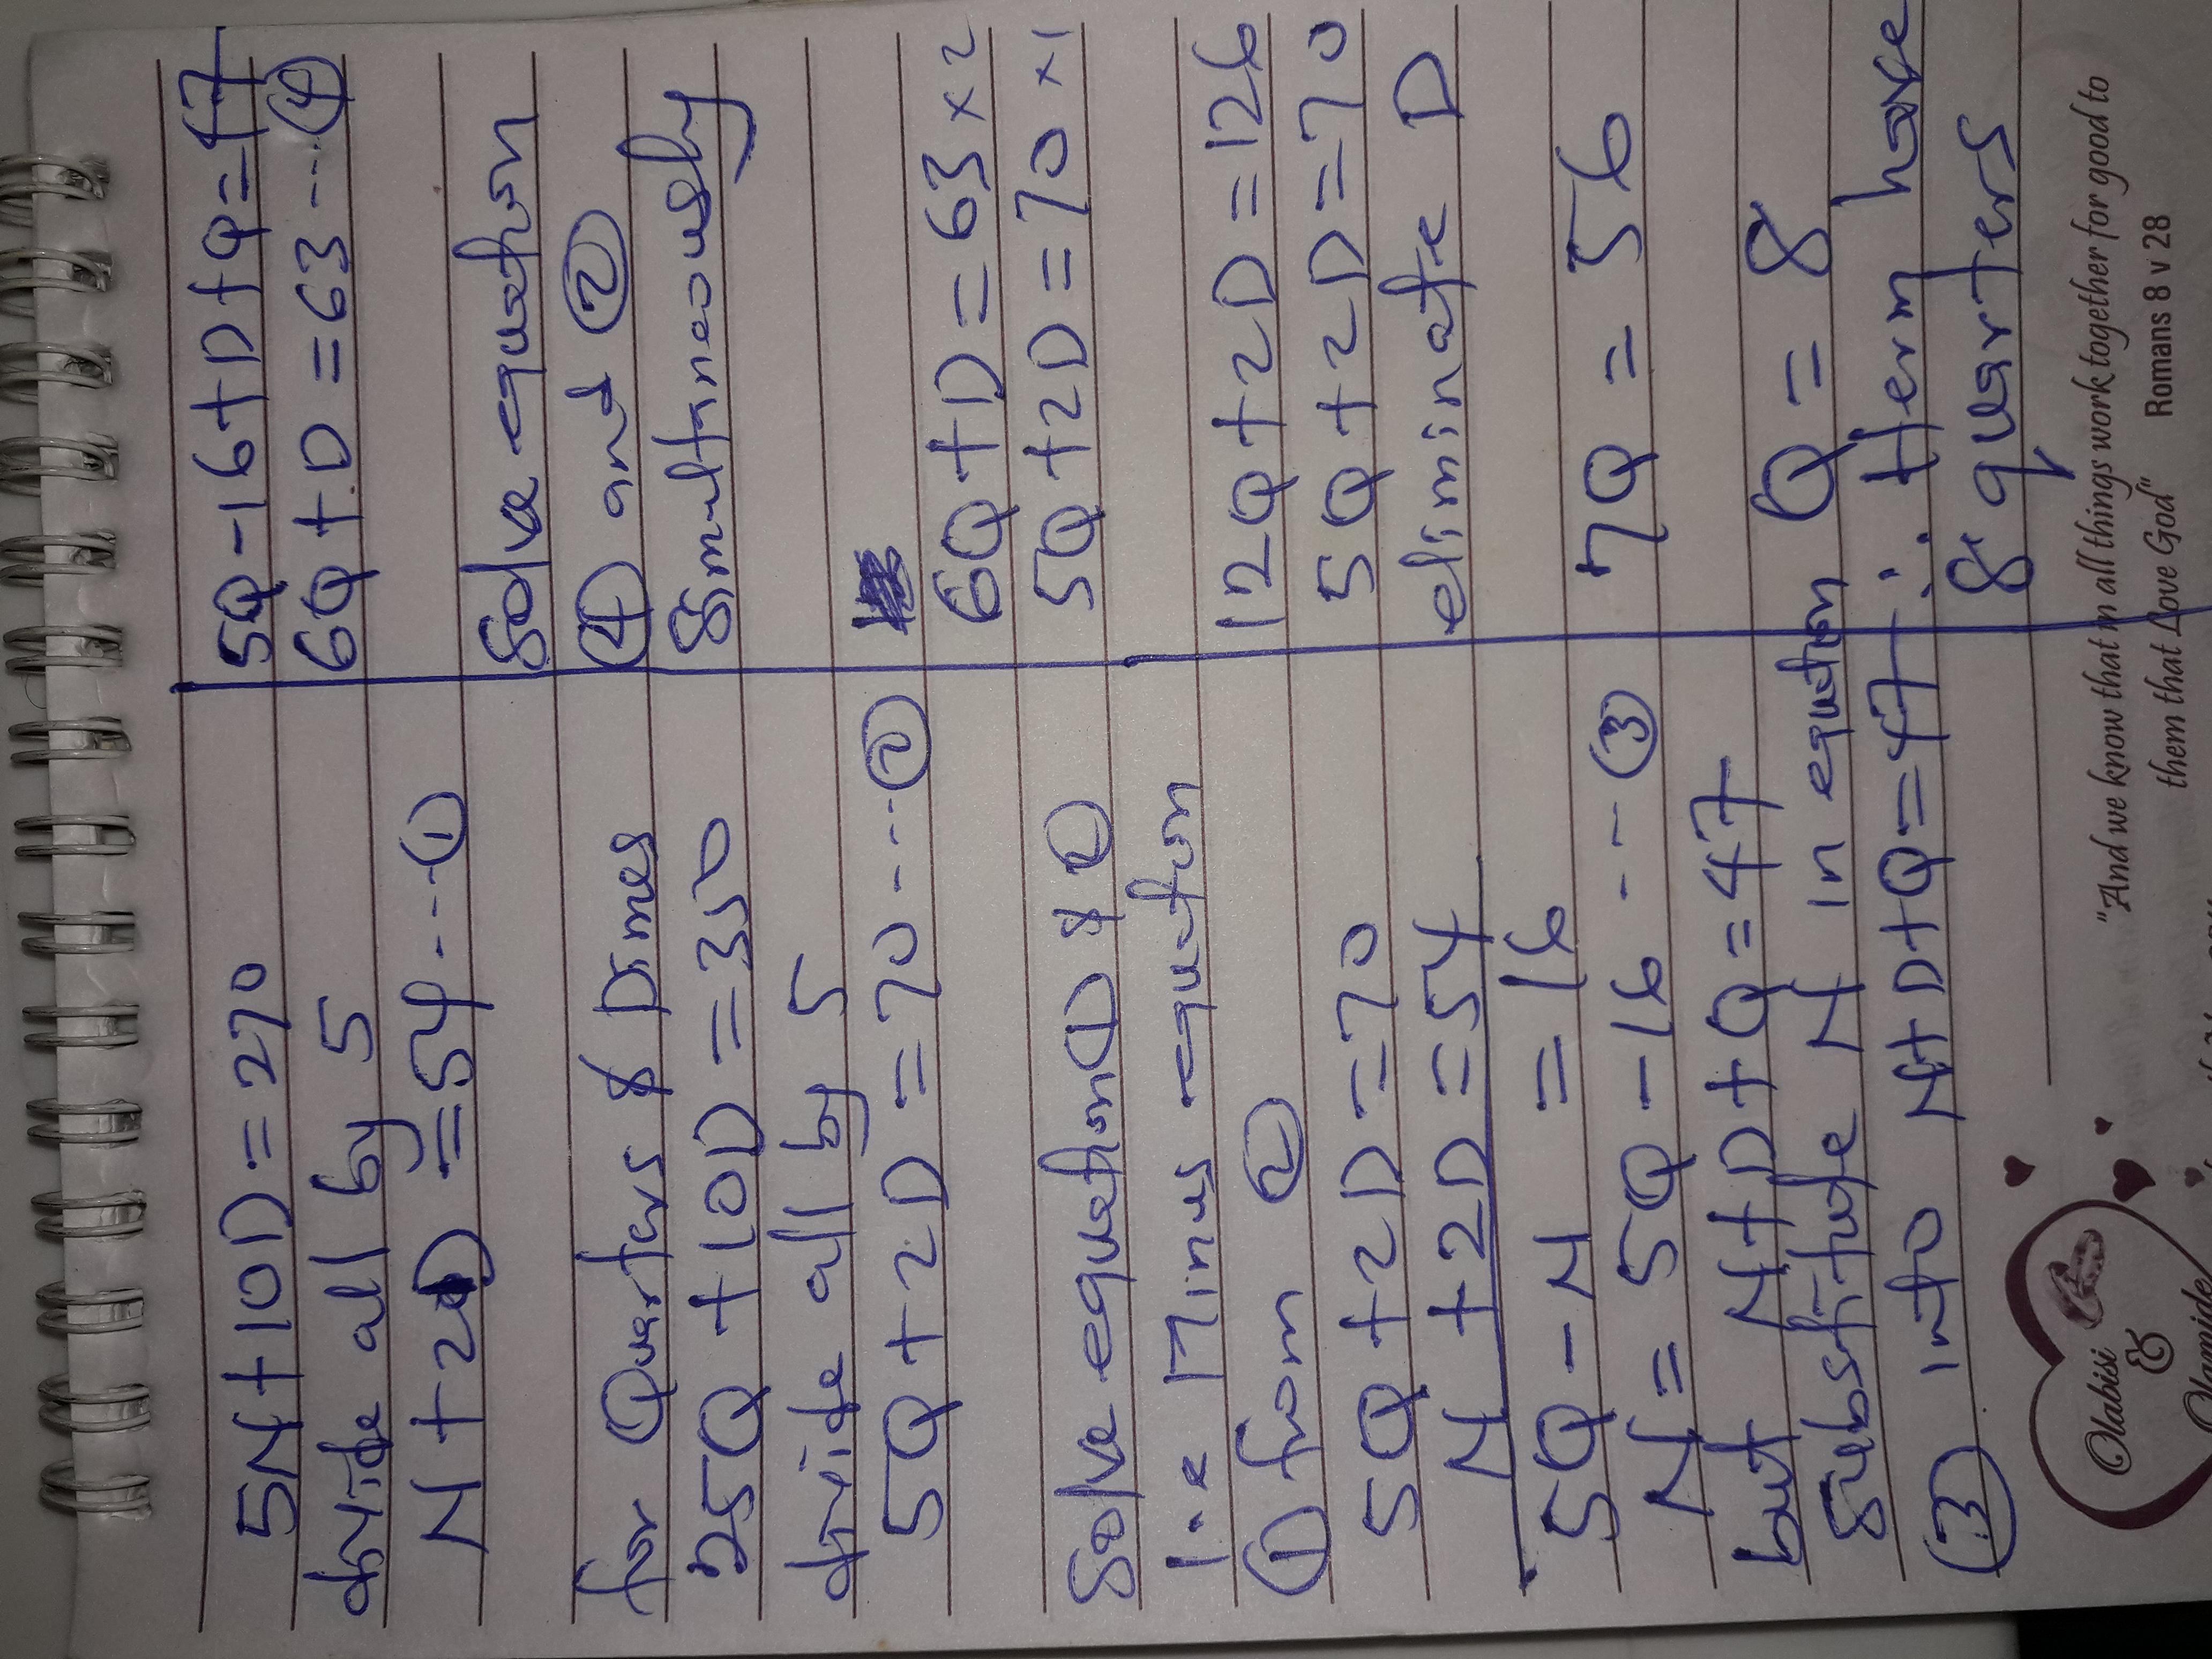 5N+10D=270
divide all by 5
N+2D=54---①
for Quarters & Dimes
25Q+10D=350
divide all by 5
5Q+2D=70---②
Solve equation① & ②
i.e Minus equation
① from ②
5Q+2D=70
N+2D=54
5Q-N=16
N=5Q-16---③
but N+D+Q=47
Substitute N in equation
③ into N+D+Q=47
5Q-16+D+Q=47
6Q+D=63---④
Solve equation
④ and ②
Simultaneously
6Q+D=63×2
5Q+2D=70×1
12Q+2D=126
5Q+2D=70
eliminate D
7Q=56
Q=8
∴ Herm have
8 quarters
"And we know that in all things work together for good to
them that Love God" Romans 8 v 28
Olabisi
&